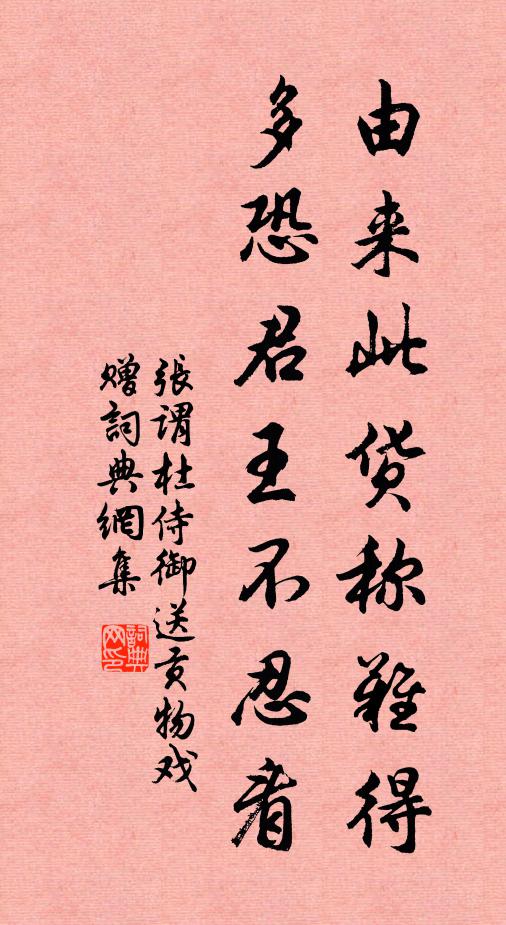 由来此货称難得
多恐君王不忍看
張謂杜侍御送貢物戏
赠詞典網集
詞典
网印